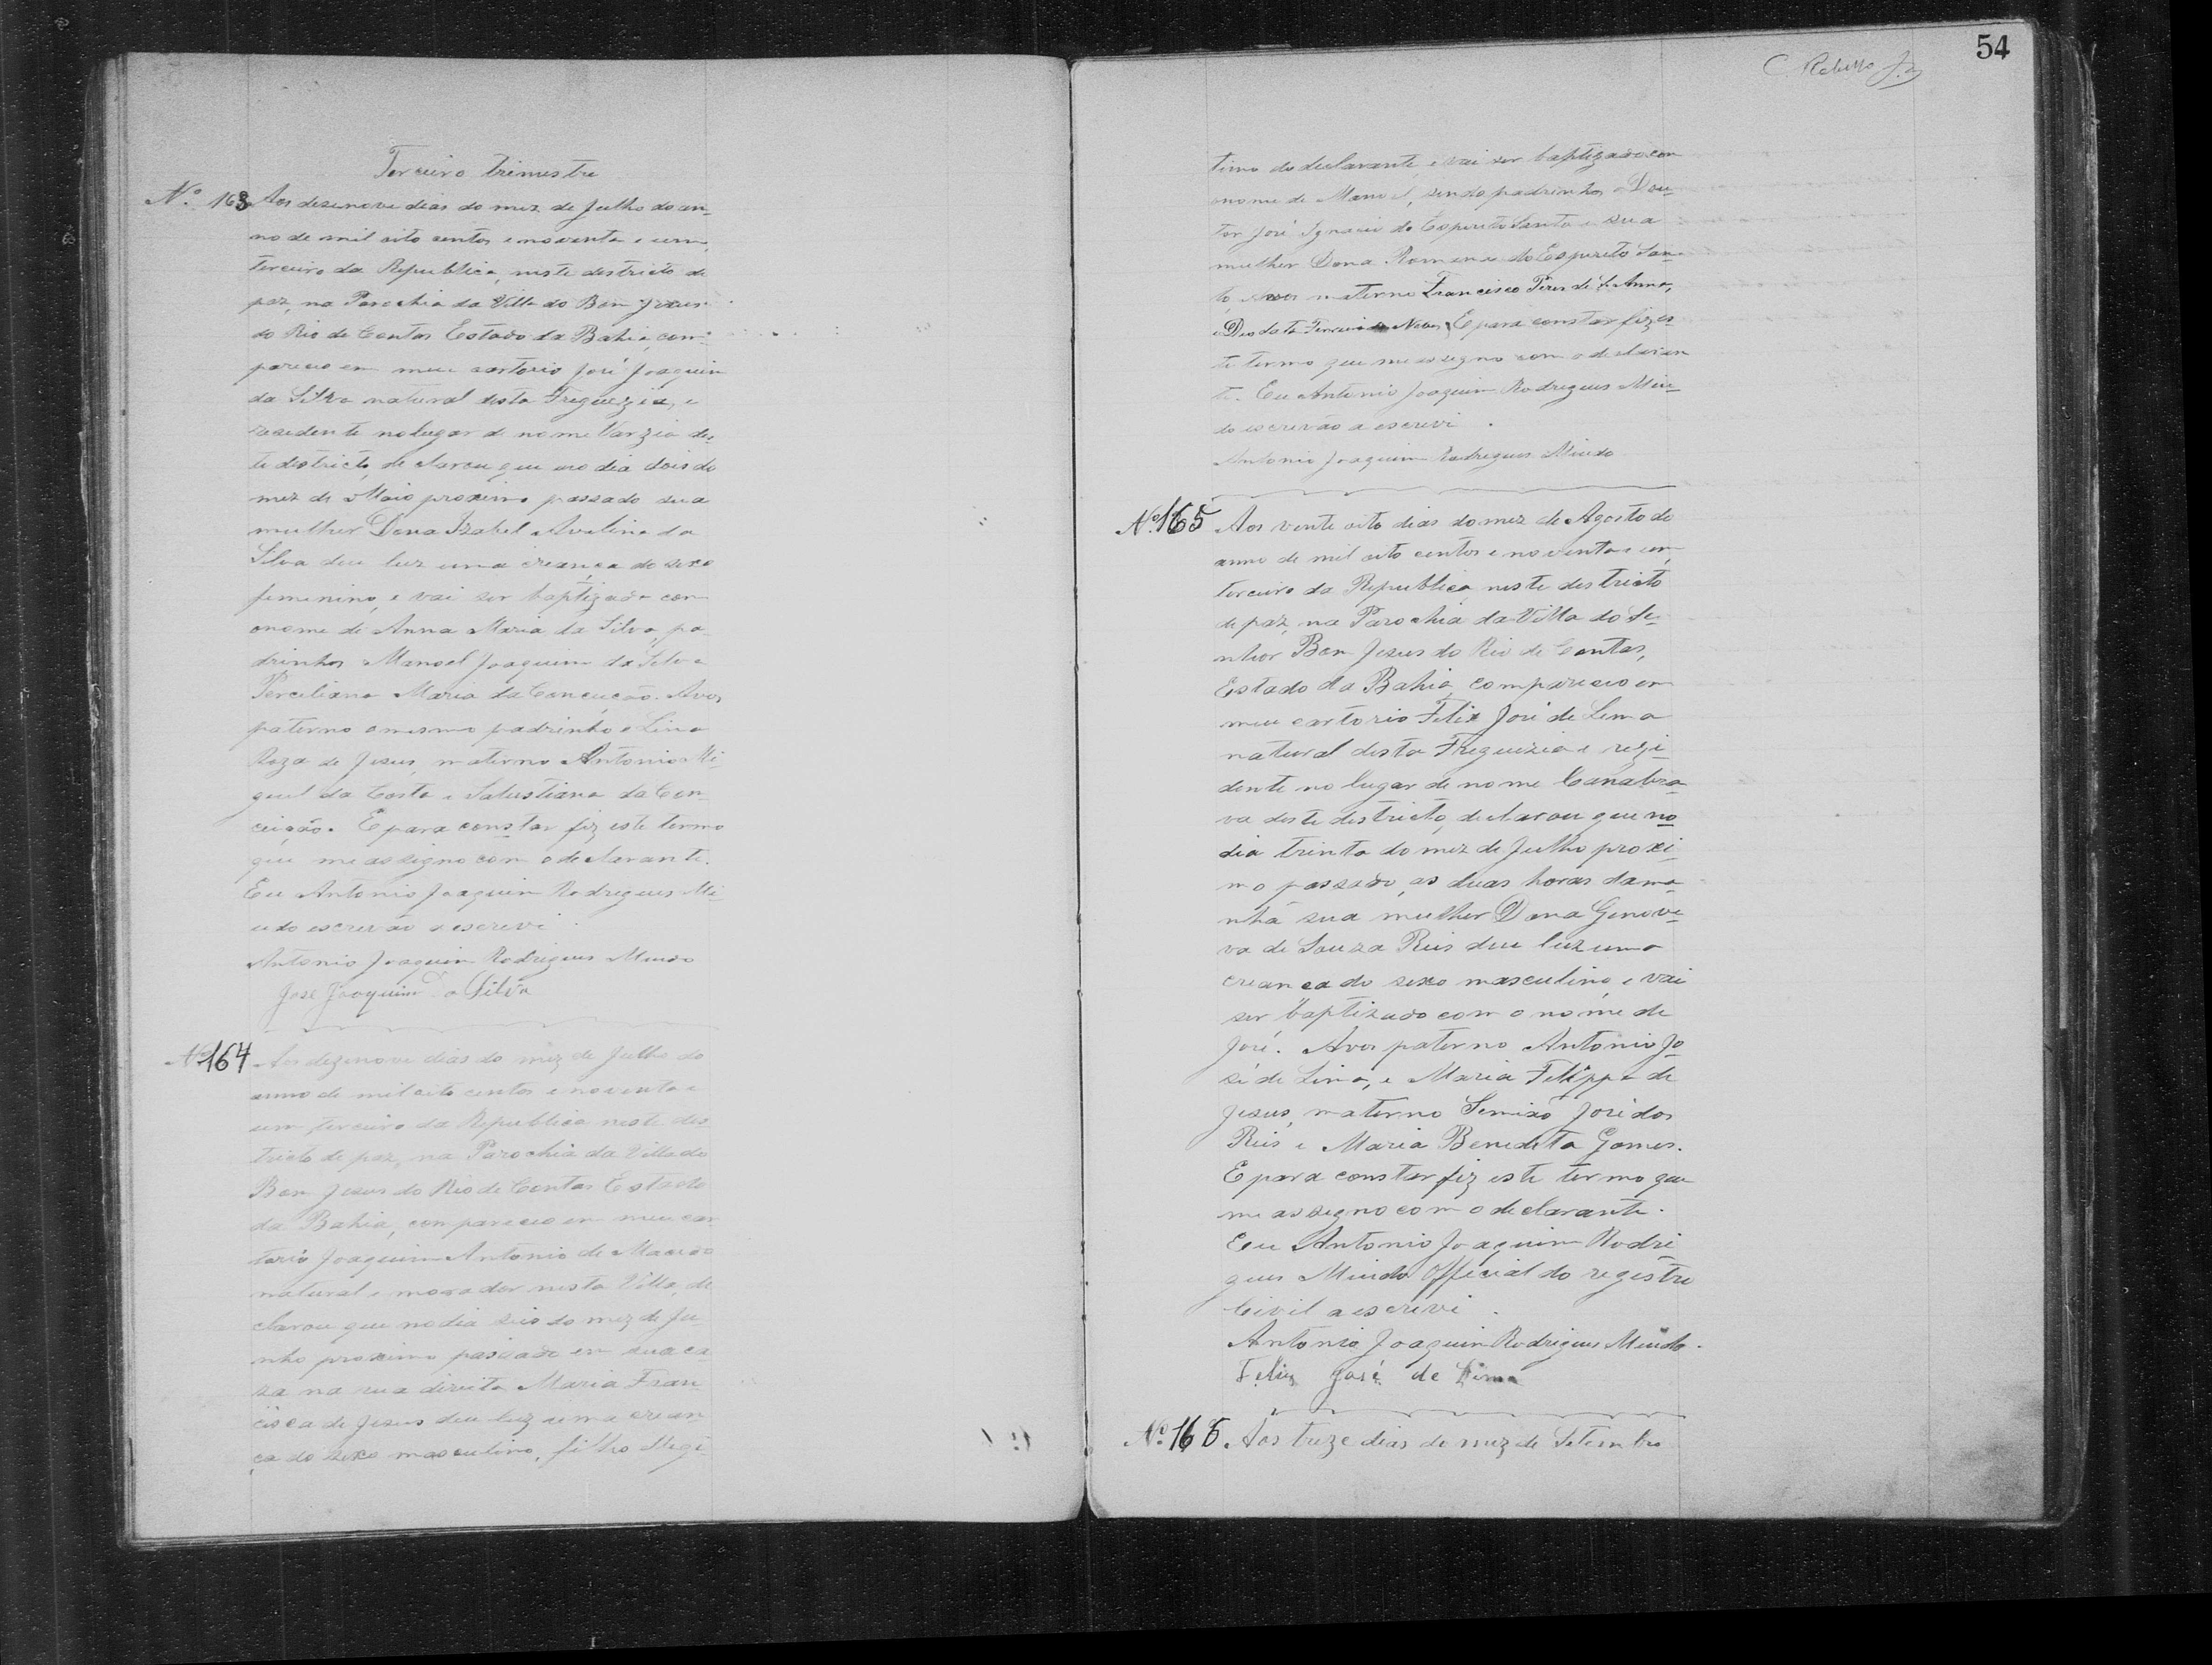 Terceiro trimestre
Nº. 163 Aos desenove dias do mez de Julho do an-
no de mil oito centos e noventa e um,
terceiro da Republica, neste destricto de
paz, na Parochia da Villa do Bom Jesus
do Rio de Contas Estado da Bahia, com-
pareceo em meu cartorio José Joaquim
da Silva natural desta Freguezia, e
rezedente no lugar de nome Varzia des-
te destricto, declarou que no dia dois do
mez de Maio proximo passado sua
mulher Dona Izabel Avelina da
Silva deu luz uma creança do sexo
femenino, e vai ser baptizada com
o nome de Anna Maria da Silva, pa-
drinhos Manoel Joaquim da Silva e
Perciliana Maria da Conceição. Avos
paterno o mesmo padrinho e Lina
Roza de Jesus, materno Antonio Mi-
guel da Costa e Salustiana da Con-
ceição. E para constar fiz este termo
que me assigno com o declarante.
Eu Antonio Joaquim Rodrigues Mi-
udo escrevão a escrevi.
Antonio Joaquim Rodrigues Miudo
José Joaquim da Silva
Nº 164 Aos dezenove dias do mez de Julho do
anno de mil oito centos e noventa e
um, terceiro da Republica neste des
tricto de paz, na Parochia da Villa do
Bom Jesus do Rio de Contas Estado
da Bahia, compareceo em meu car
torio Joaquim Antonio de Macedo
natural e morador nesta Villa, de
clarou que no dia seis do mez de Ju-
nho proximo passado em sua ca-
sa na rua direita Maria Fran
cisca de Jesus deu luz uma crean
ça do sexo masculino, filho illegi-
54
C. Rebello
timo do declarante, e vai ser baptizado com
o nome de Manoel, sendo padrinhos o Dou-
tor José Ignacio do Espirito Santo e sua
mulher Dona Romana do Espireto San-
to, Avos materno Francisco Peres de S. Anna,
e Deodata Ferreira Neves, E para constar fiz es-
te termo que me assigno com o declaran
te. Eu Antonio Joaquim Rodrigues Miu-
do escrevão a escrevi.
Antonio Joaquim Rodrigues Miudo
Nº 165 Aos vente oito dias do mez de Agosto do
anno de mil oito centos e noventa e um,
terceiro da Republica, neste destricto
de paz, na Parochia da Villa do Se-
nhor Bom Jesus do Rio de Contas,
Estado da Bahia, compareceo em
meu cartorio Felix José de Lima
natural desta Freguezia e rezi-
dente no lugar de nome Canabra-
va deste destricto, declarou que no
dia trinta do mez de Julho proxi-
mo passado, as duas horas da ma-
nhã sua mulher Dona Genove-
va de Souza Reis deu luz uma
creanca do sexo masculino, e vai
ser baptizado com o nome de
José. Avos paterno Antonio Jo-
sé de Lima, e Maria Felippa de
Jesus, materno José dos
Reis e Maria Benedeta Gomes.
E para constar fiz este termo que
me assegno com o declarante.
Eeu Antonio Joaquim Rodri
gues Miudo Official do registro
Civil a escrevi.
Antonio Joaquim Rodrigues Miudo.
Felix José de Lima
Nº 166. Aos treze dias do mez de Setembro